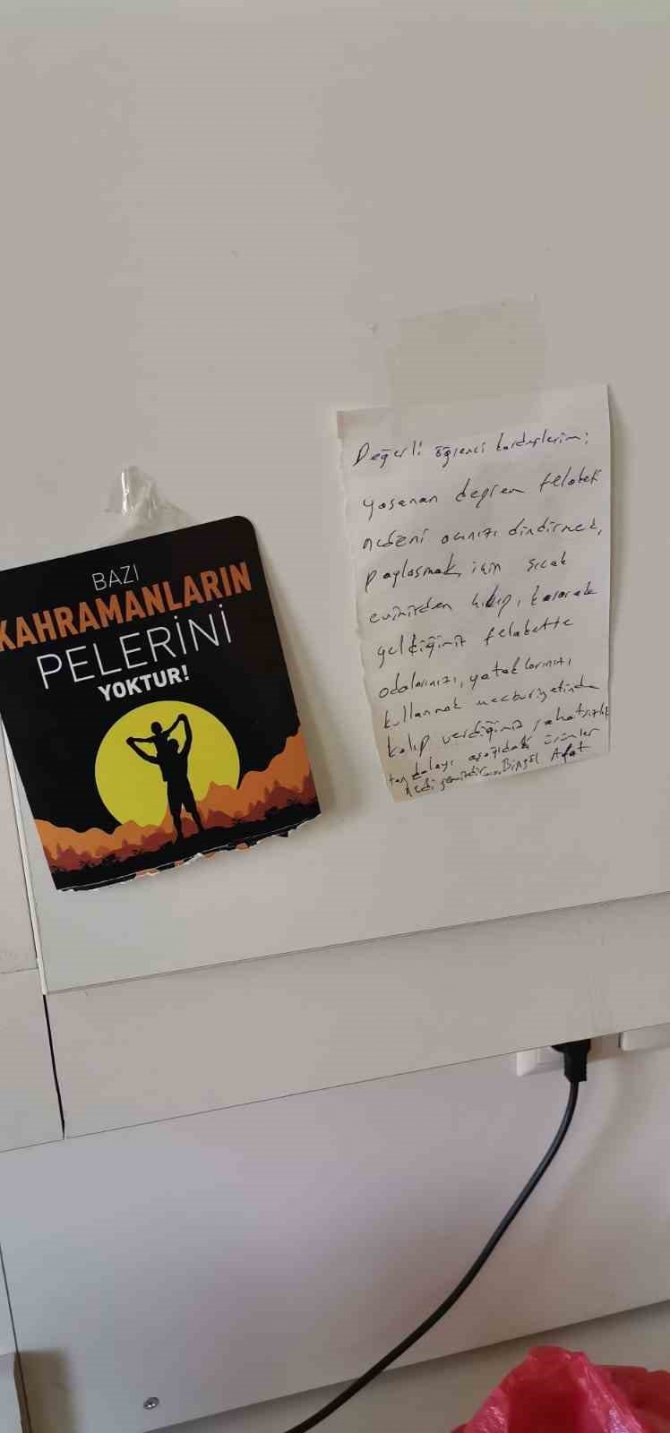 BAZI
KAHRAMANLARIN
PELERİNİ
YOKTUR!
Değerli öğrenci kardeşlerim;
yaşanan deprem felaketi
nedeni acınızı dindirmek,
paylaşmak için sıcak
evinizden kalkıp, koşarak
geldiğimiz felakette
odalarınızı, yataklarınızı
kullanmak mecburiyetinde
kalıp verdiğimiz rahatsızlık
tan dolayı aşağıdaki ürünler
hediyemizdir. Bingöl Afat